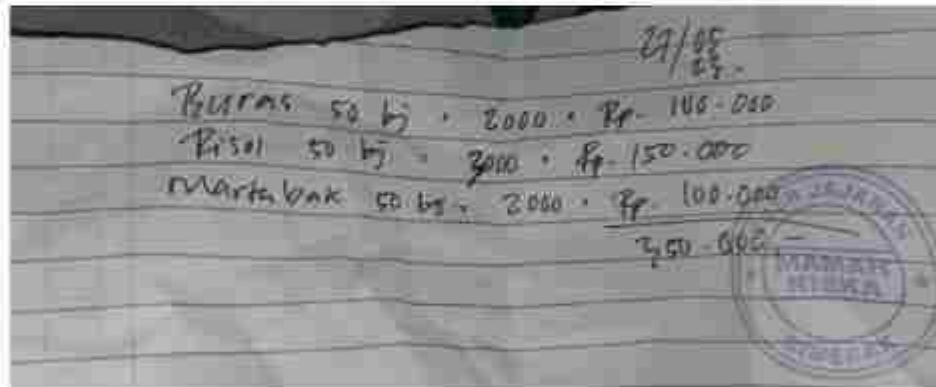 27/05
Buras 50 bj . 2000 . Rp. 100.000
Risol 50 bj . 3000 . Rp. 150.000
Martabak 50 bj . 2000 . Rp. 100.000
350.000
JAJANAN
MAMAH